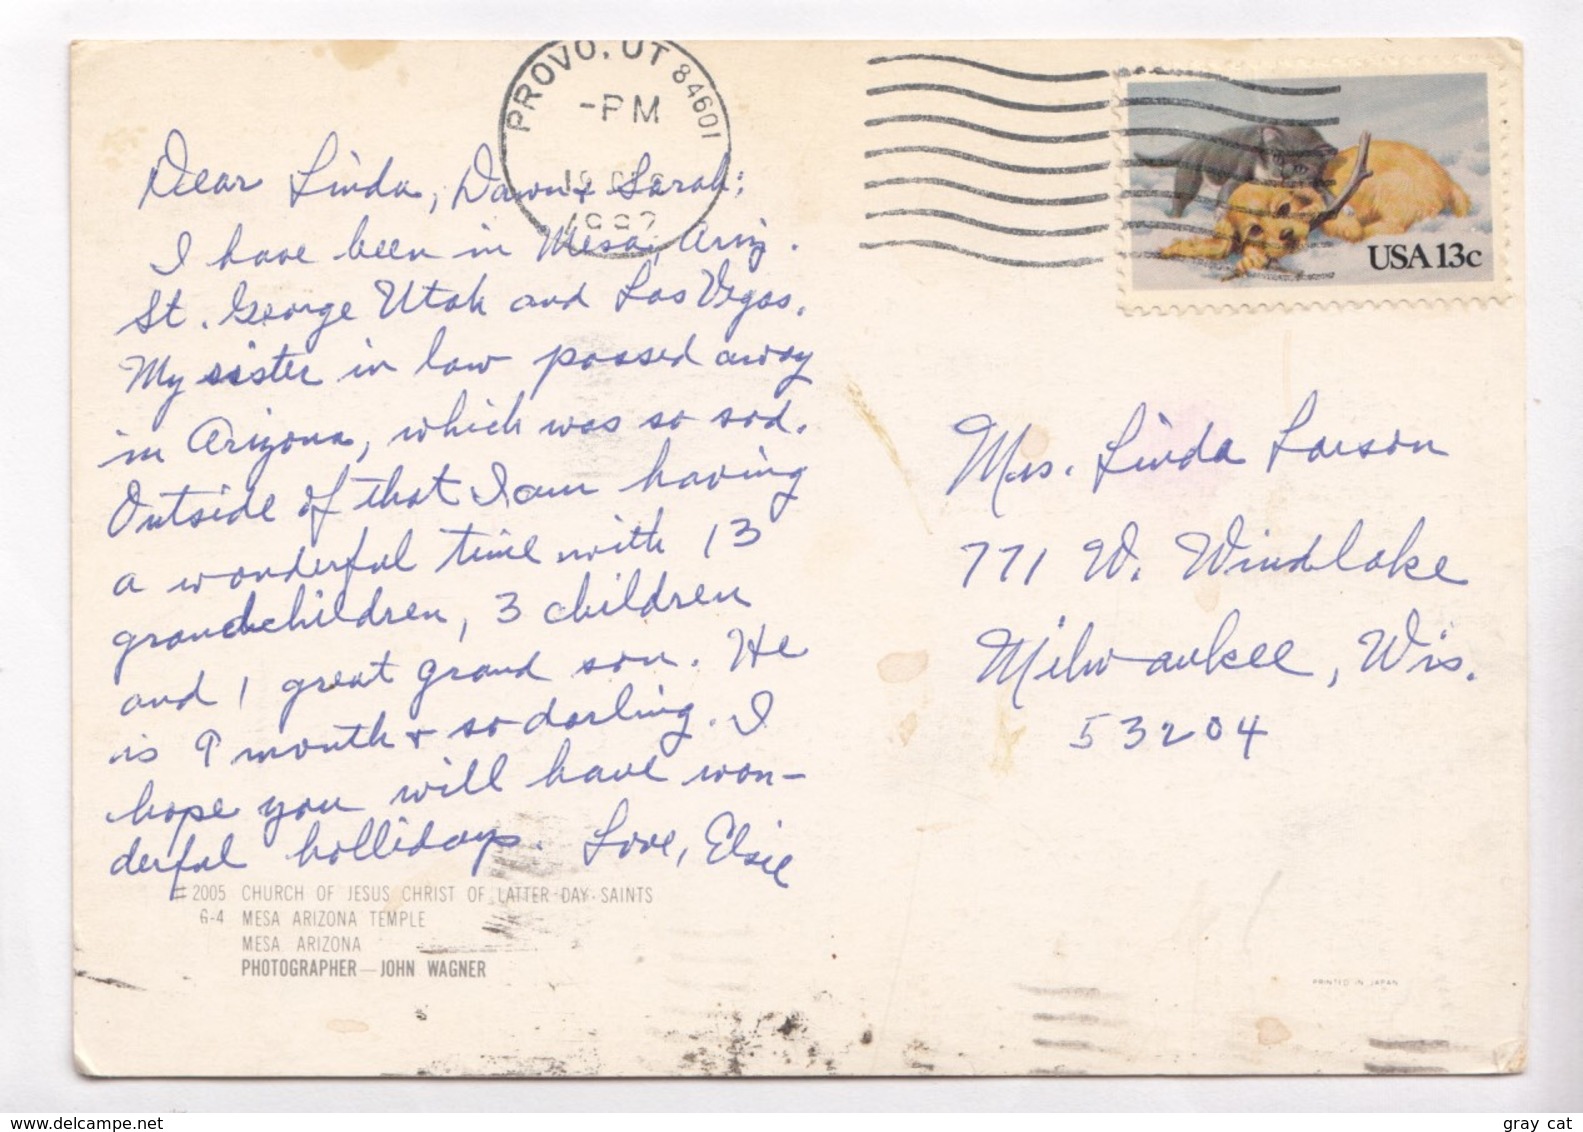 PROVO, UT 84601
-PM
USA 13c
Dear Linda, Dawn & Sarah:
I have been in Mesa, Ariz.
St. George Utah and Las Vegas.
My sister in law passed away
in Arizona, which was so sad.
Outside of that I am having
a wonderful time with 13
grandchildren, 3 children
and 1 great grand son. He
is 9 month & so darling. I
hope you will have won-
derful hollidays. Love, Elsie
Mrs. Linda Larson
771 W. Windlake
Milwaukee, Wis.
53204
# 2005 CHURCH OF JESUS CHRIST OF LATTER-DAY-SAINTS
6-4 MESA ARIZONA TEMPLE
MESA ARIZONA
PHOTOGRAPHER—JOHN WAGNER
PRINTED IN JAPAN
www.delcampe.net
gray cat